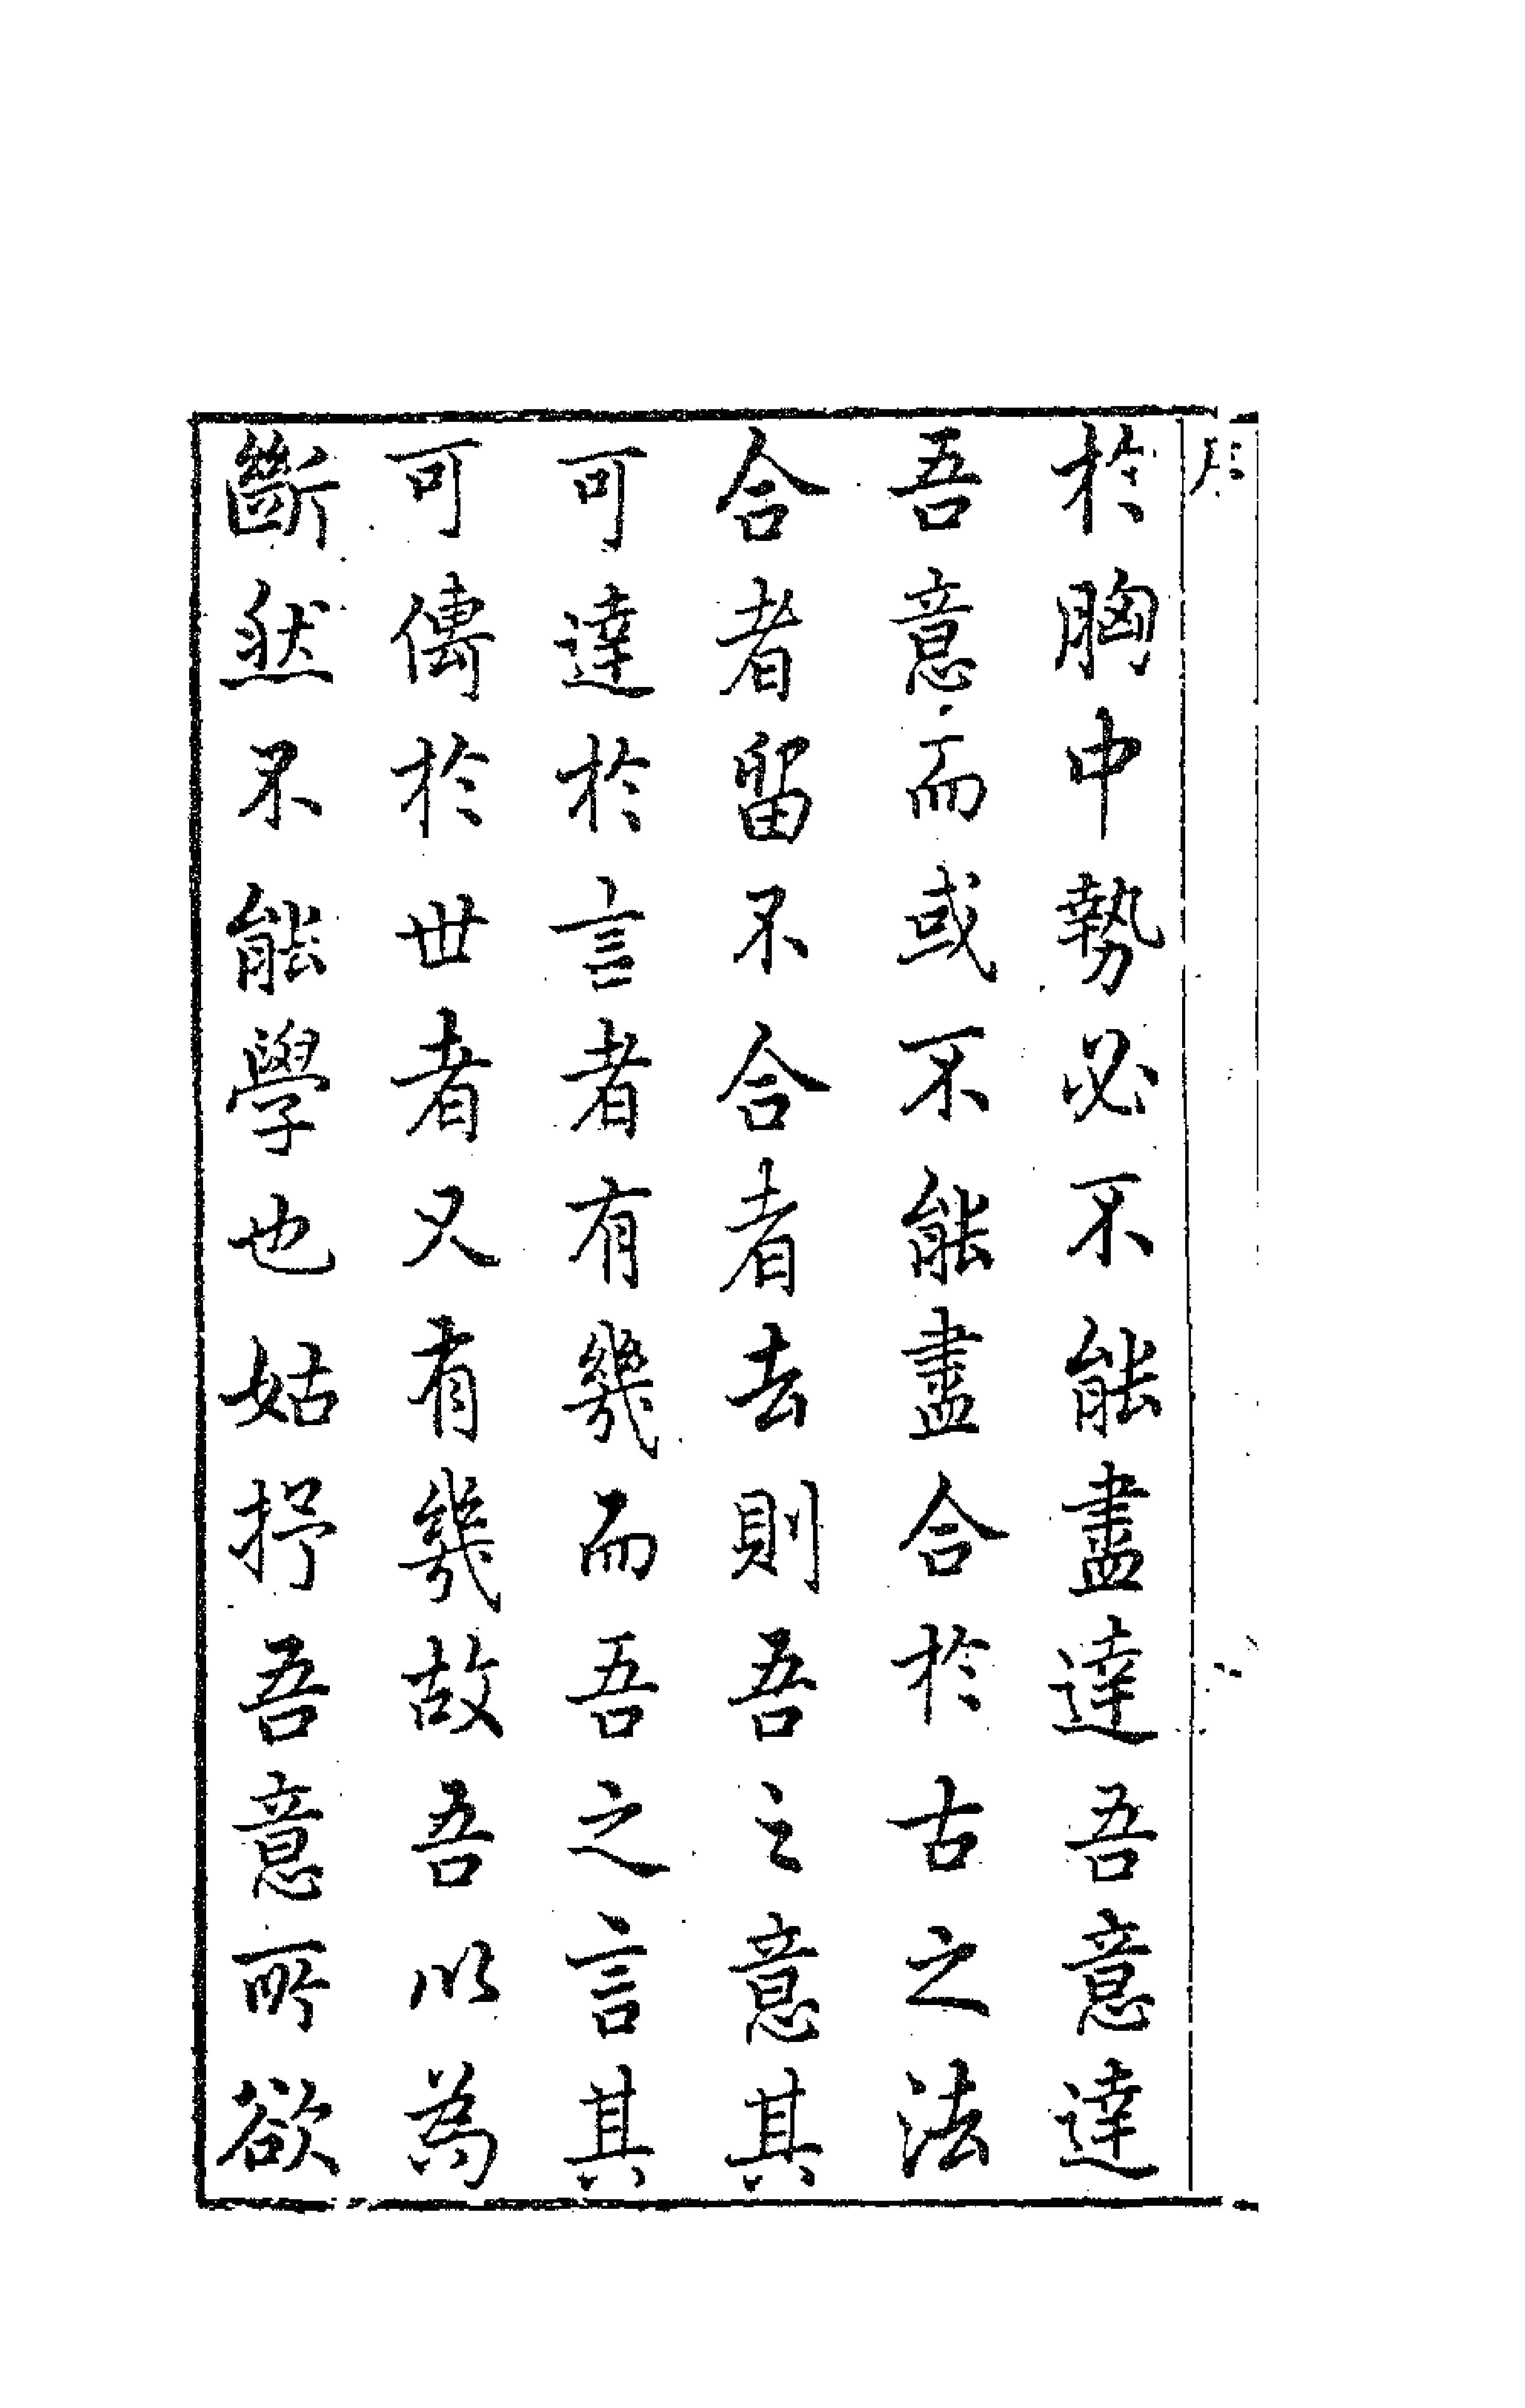 於胸中勢必不能盡達吾意達
吾意而或不能盡合於古之法
合者留不合者去則吾之意其
可達於言者有幾而吾之言其
可傳於世者又有幾故吾以為
斷然不能學也姑抒吾意所欲